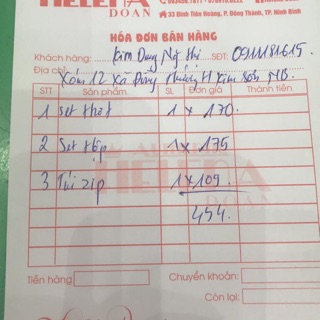 HELENA
DOAN
33 Đinh Tiên Hoàng, P. Đông Thành, TP. Ninh Bình
HÓA ĐƠN BÁN HÀNG
Khách hàng: Kim Dung Nguyễn Thị SĐT: 0911181615
Địa chỉ: Xóm 12 Xã Đồng Hướng H Kim Sơn NB.
STT Sản phẩm SL Đơn giá Thành tiền
1 Set 1 x 170.
2 Set 1 x 175
3 Túi zip 1 x 109.
454.
Tiền hàng Chuyển khoản:
Còn lại: